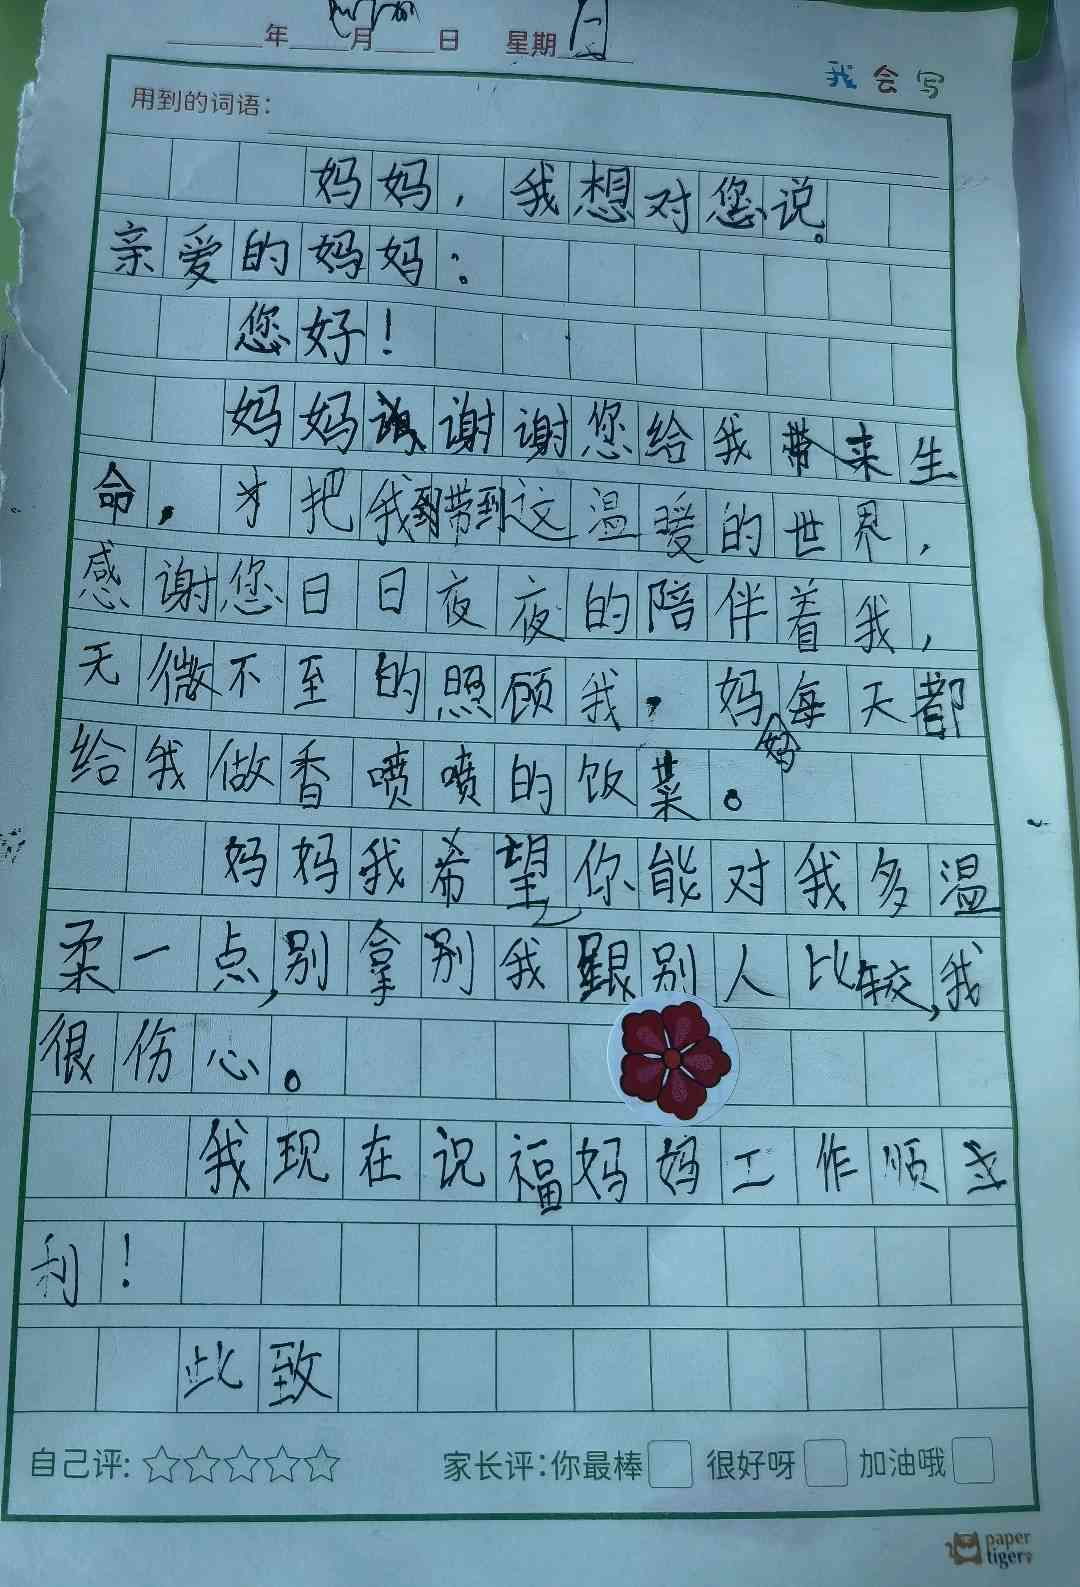 年 月 日 星期
我会写
用到的词语：
妈妈，我想对您说。
亲爱的妈妈：
您好！
妈妈谢谢您给我带来生
命，才把我带到这温暖的世界，
感谢您日日夜夜的陪伴着我，
无微不至的照顾我，妈妈每天都
给我做香喷喷的饭菜。
妈妈我希望你能对我多温
柔一点，别拿别我跟别人比较，我
很伤心。
我现在祝福妈妈工作顺
利！
此致
自己评： 家长评：你最棒 很好呀 加油哦
paper
tiger